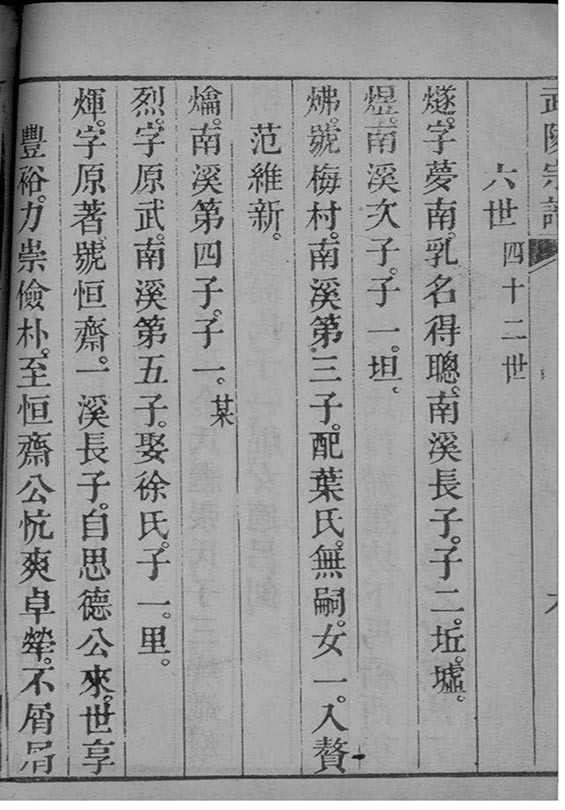 武陵宗譜
六世 四十二世
燧。字夢南。乳名得聰。南溪長子。子二。坵。墟。
煜。南溪次子。子一。坦。
炥。號梅村。南溪第三子。配葉氏。無嗣。女一。入贅
范維新。
爚。南溪第四子。子一。某
烈。字原武。南溪第五子。娶徐氏。子一。里。
煇。字原著。號恒齋。一溪長子。自思德公來。世享
豐裕。力崇儉朴。至恒齋公忼爽卓犖。不屑屑